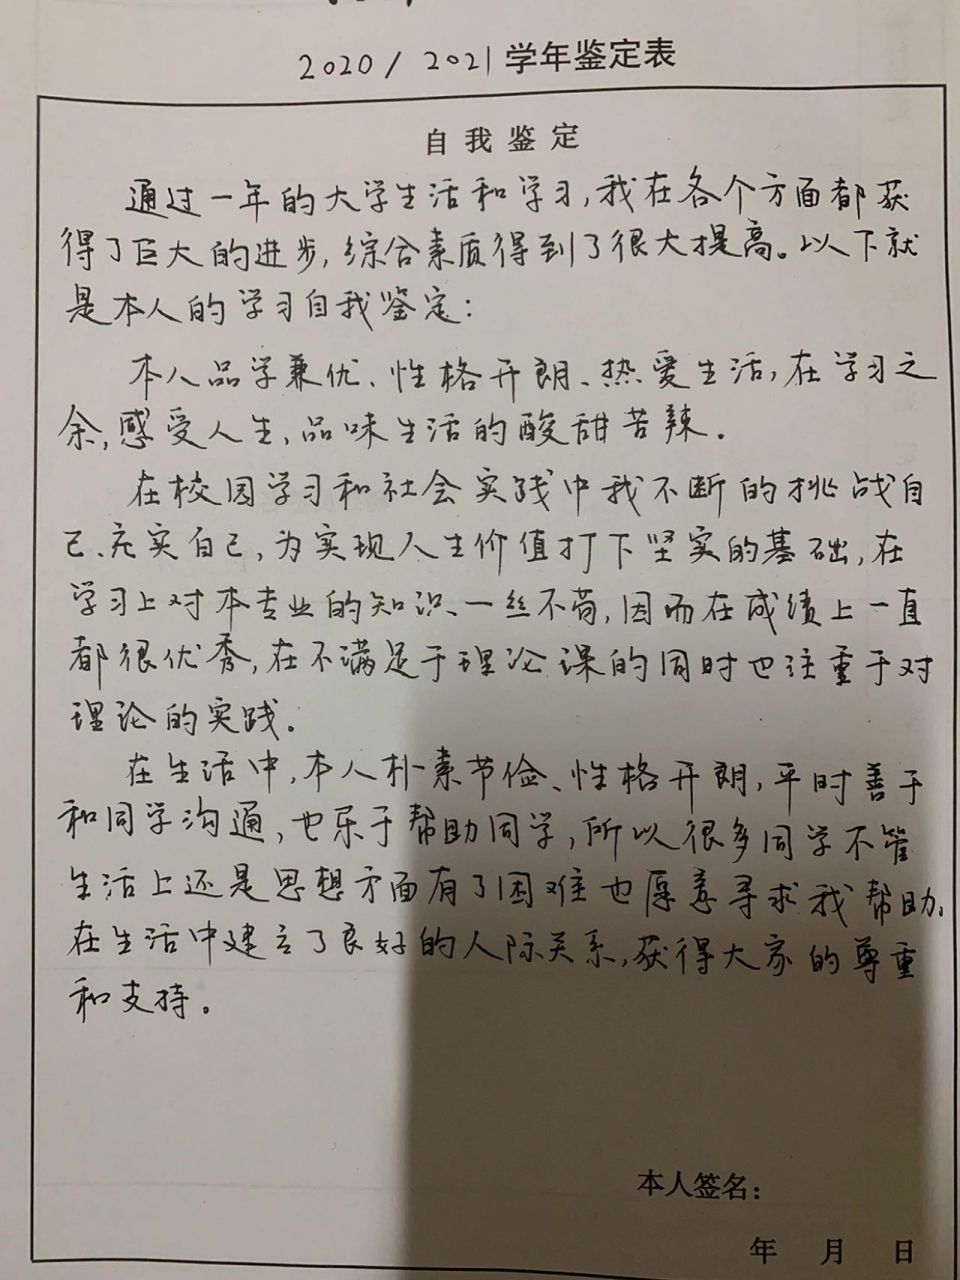 2020/2021学年鉴定表
自我鉴定
通过一年的大学生活和学习,我在各个方面都获
得了巨大的进步,综合素质得到了很大提高。以下就
是本人的学习自我鉴定:
本人品学兼优、性格开朗、热爱生活,在学习之
余,感受人生、品味生活的酸甜苦辣。
在校园学习和社会实践中我不断的挑战自
己、充实自己,为实现人生价值打下坚实的基础,在
学习上对本专业的知识、一丝不苟,因而在成绩上一直
都很优秀,在不满足于理论课的同时也注重于对
理论的实践。
在生活中,本人朴素节俭、性格开朗,平时善于
和同学沟通,也乐于帮助同学,所以很多同学不管
生活上还是思想方面有了困难也愿意寻求我帮助。
在生活中建立了良好的人际关系,获得大家的尊重
和支持。
本人签名:
年 月 日